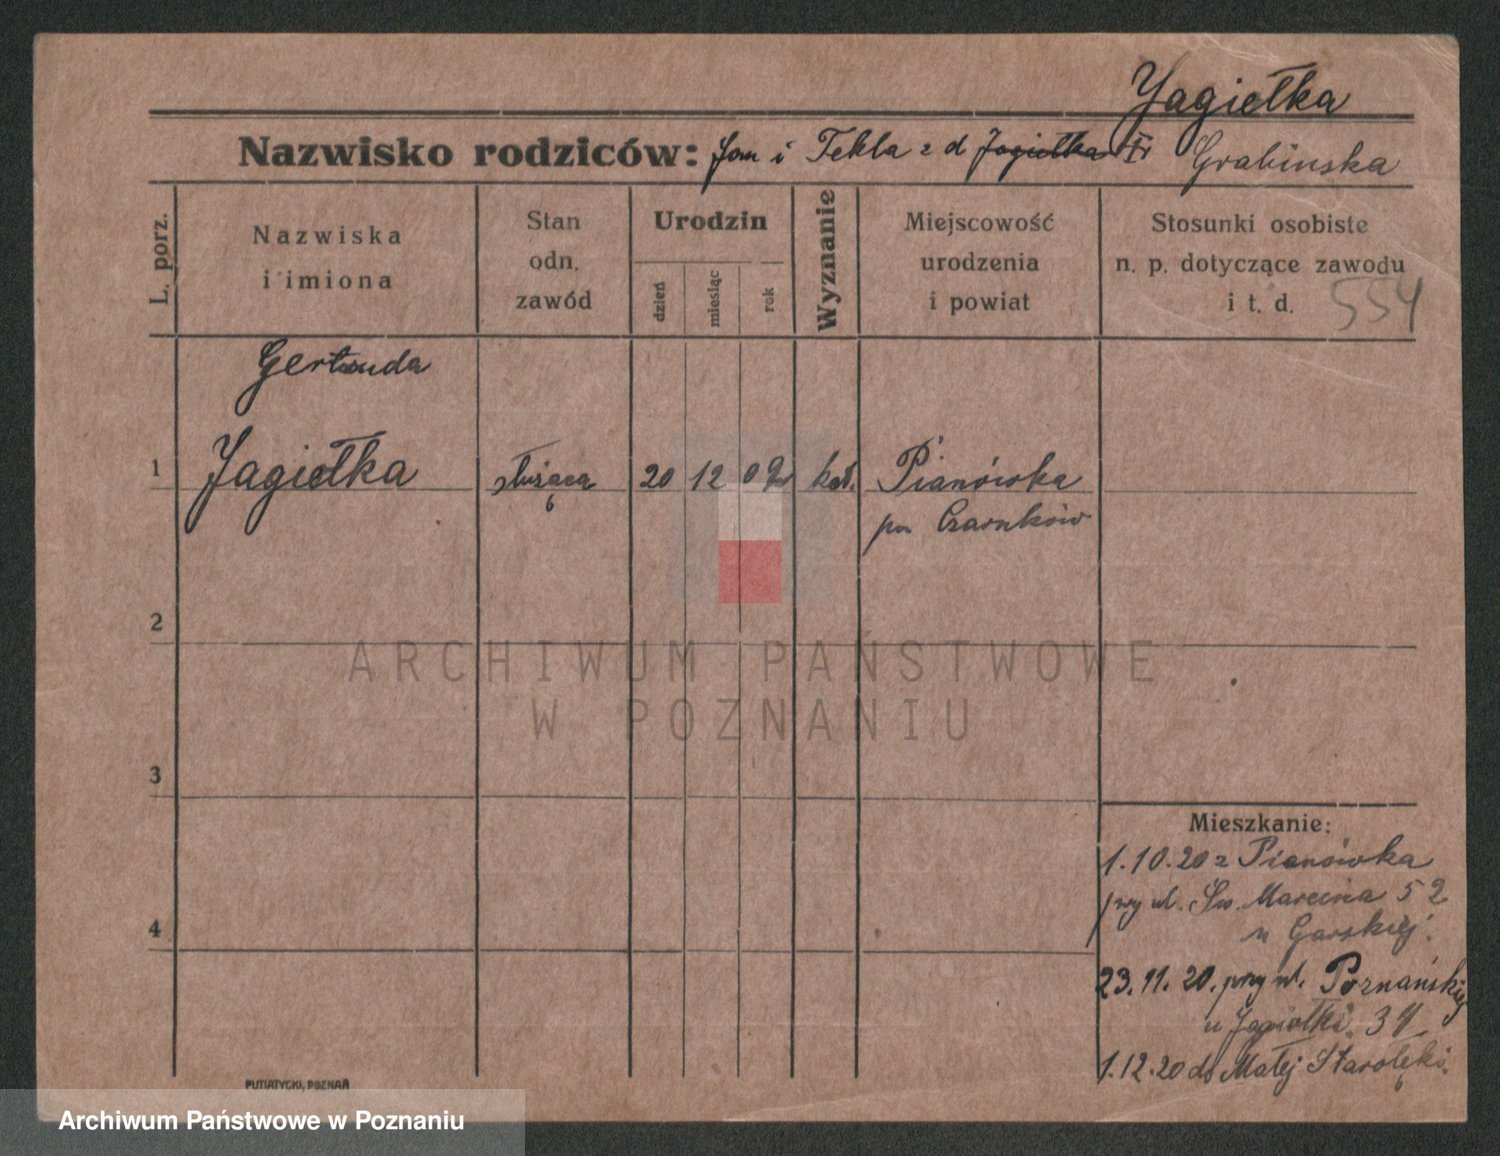 Jagiełka
Nazwisko rodziców: Jan i Tekla z d Jagiełka Grabinska
L. porz.
Nazwiska
i imiona
Stan
odn.
zawód
Urodzin
dzień
miesiąc
rok
Wyznanie
Miejscowość
urodzenia
i powiat
Stosunki osobiste
n. p. dotyczące zawodu
i t. d.
554
Gertruda
1 Jagiełka służąca 20 12 kat. Pianówka
pow Czarnków
2
3
4
Mieszkanie:
1.10.20 z Pianówka
przy ul. Św. Marcina 52
u Garskiej.
23.11.20. przy ul. Poznańskiej
u Jagiołki 34
1.12.20 do Małej Starołęki.
PUTIATYCKI, POZNAŃ
ARCHIWUM PAŃSTWOWE
W POZNANIU
Archiwum Państwowe w Poznaniu